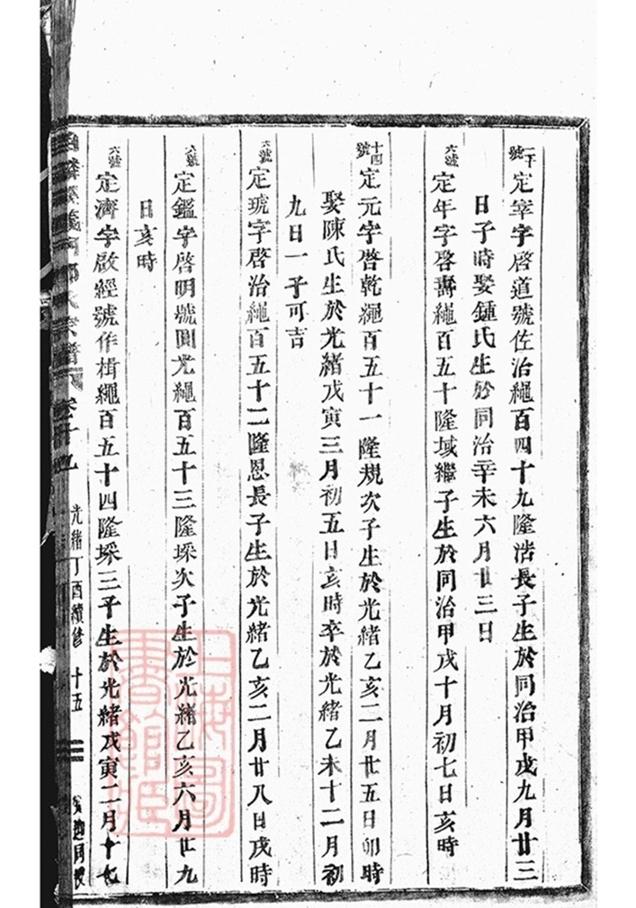 二下號 定宰字啓道號佐治繩百四十九隆浩長子生於同治甲戌九月廿三
日子時娶鍾氏生於同治辛未六月廿三日
六號 定年字啓壽繩百五十隆域繼子生於同治甲戌十月初七日亥時
十四號 定元字啓乾繩百五十一隆規次子生於光緒乙亥二月廿五日卯時
娶陳氏生於光緒戊寅三月初五日亥時卒於光緒乙未十二月初
九日一子可吉
六號 定琥字啓治繩百五十二隆恩長子生於光緒乙亥二月廿八日戌時
六號 定鑑字啓明號圓光繩百五十三隆埰次子生於光緒乙亥六月廿九
日亥時
六號 定濟字啟經號作楫繩百五十四隆埰三子生於光緒戊寅二月十七
宗譜 卷十九 光緒丁酉續修 十五
上海圖書館藏